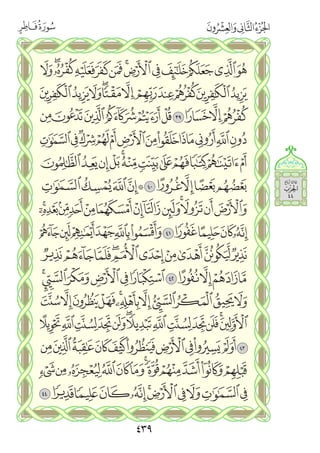 الجزء الثاني والعشرون
سورة فاطر
هُوَ الَّذِي جَعَلَكُمْ خَلَائِفَ فِي الْأَرْضِ فَمَن كَفَرَ فَعَلَيْهِ كُفْرُهُ وَلَا
يَزِيدُ الْكَافِرِينَ كُفْرُهُمْ عِندَ رَبِّهِمْ إِلَّا مَقْتًا وَلَا يَزِيدُ الْكَافِرِينَ
كُفْرُهُمْ إِلَّا خَسَارًا ٣٩ قُلْ أَرَأَيْتُمْ شُرَكَاءَكُمُ الَّذِينَ تَدْعُونَ مِن
دُونِ اللَّهِ أَرُونِي مَاذَا خَلَقُوا مِنَ الْأَرْضِ أَمْ لَهُمْ شِرْكٌ فِي السَّمَاوَاتِ
أَمْ آتَيْنَاهُمْ كِتَابًا فَهُمْ عَلَى بَيِّنَتٍ مِّنْهُ بَلْ إِن يَعِدُ الظَّالِمُونَ
بَعْضُهُم بَعْضًا إِلَّا غُرُورًا ٤٠ إِنَّ اللَّهَ يُمْسِكُ السَّمَاوَاتِ
وَالْأَرْضَ أَن تَزُولَا وَلَئِن زَالَتَا إِنْ أَمْسَكَهُمَا مِنْ أَحَدٍ مِّن بَعْدِهِ
إِنَّهُ كَانَ حَلِيمًا غَفُورًا ٤١ وَأَقْسَمُوا بِاللَّهِ جَهْدَ أَيْمَانِهِمْ لَئِن جَاءَهُمْ
نَذِيرٌ لَّيَكُونُنَّ أَهْدَى مِنْ إِحْدَى الْأُمَمِ فَلَمَّا جَاءَهُمْ نَذِيرٌ
مَّا زَادَهُمْ إِلَّا نُفُورًا ٤٢ اسْتِكْبَارًا فِي الْأَرْضِ وَمَكْرَ السَّيِّئِ
وَلَا يَحِيقُ الْمَكْرُ السَّيِّئُ إِلَّا بِأَهْلِهِ فَهَلْ يَنظُرُونَ إِلَّا سُنَّتَ
الْأَوَّلِينَ فَلَن تَجِدَ لِسُنَّتِ اللَّهِ تَبْدِيلًا وَلَن تَجِدَ لِسُنَّتِ اللَّهِ تَحْوِيلًا
٤٣ أَوَلَمْ يَسِيرُوا فِي الْأَرْضِ فَيَنظُرُوا كَيْفَ كَانَ عَاقِبَةُ الَّذِينَ مِن
قَبْلِهِمْ وَكَانُوا أَشَدَّ مِنْهُمْ قُوَّةً وَمَا كَانَ اللَّهُ لِيُعْجِزَهُ مِن شَيْءٍ
فِي السَّمَاوَاتِ وَلَا فِي الْأَرْضِ إِنَّهُ كَانَ عَلِيمًا قَدِيرًا ٤٤
الحزب
٤٤
٤٣٩